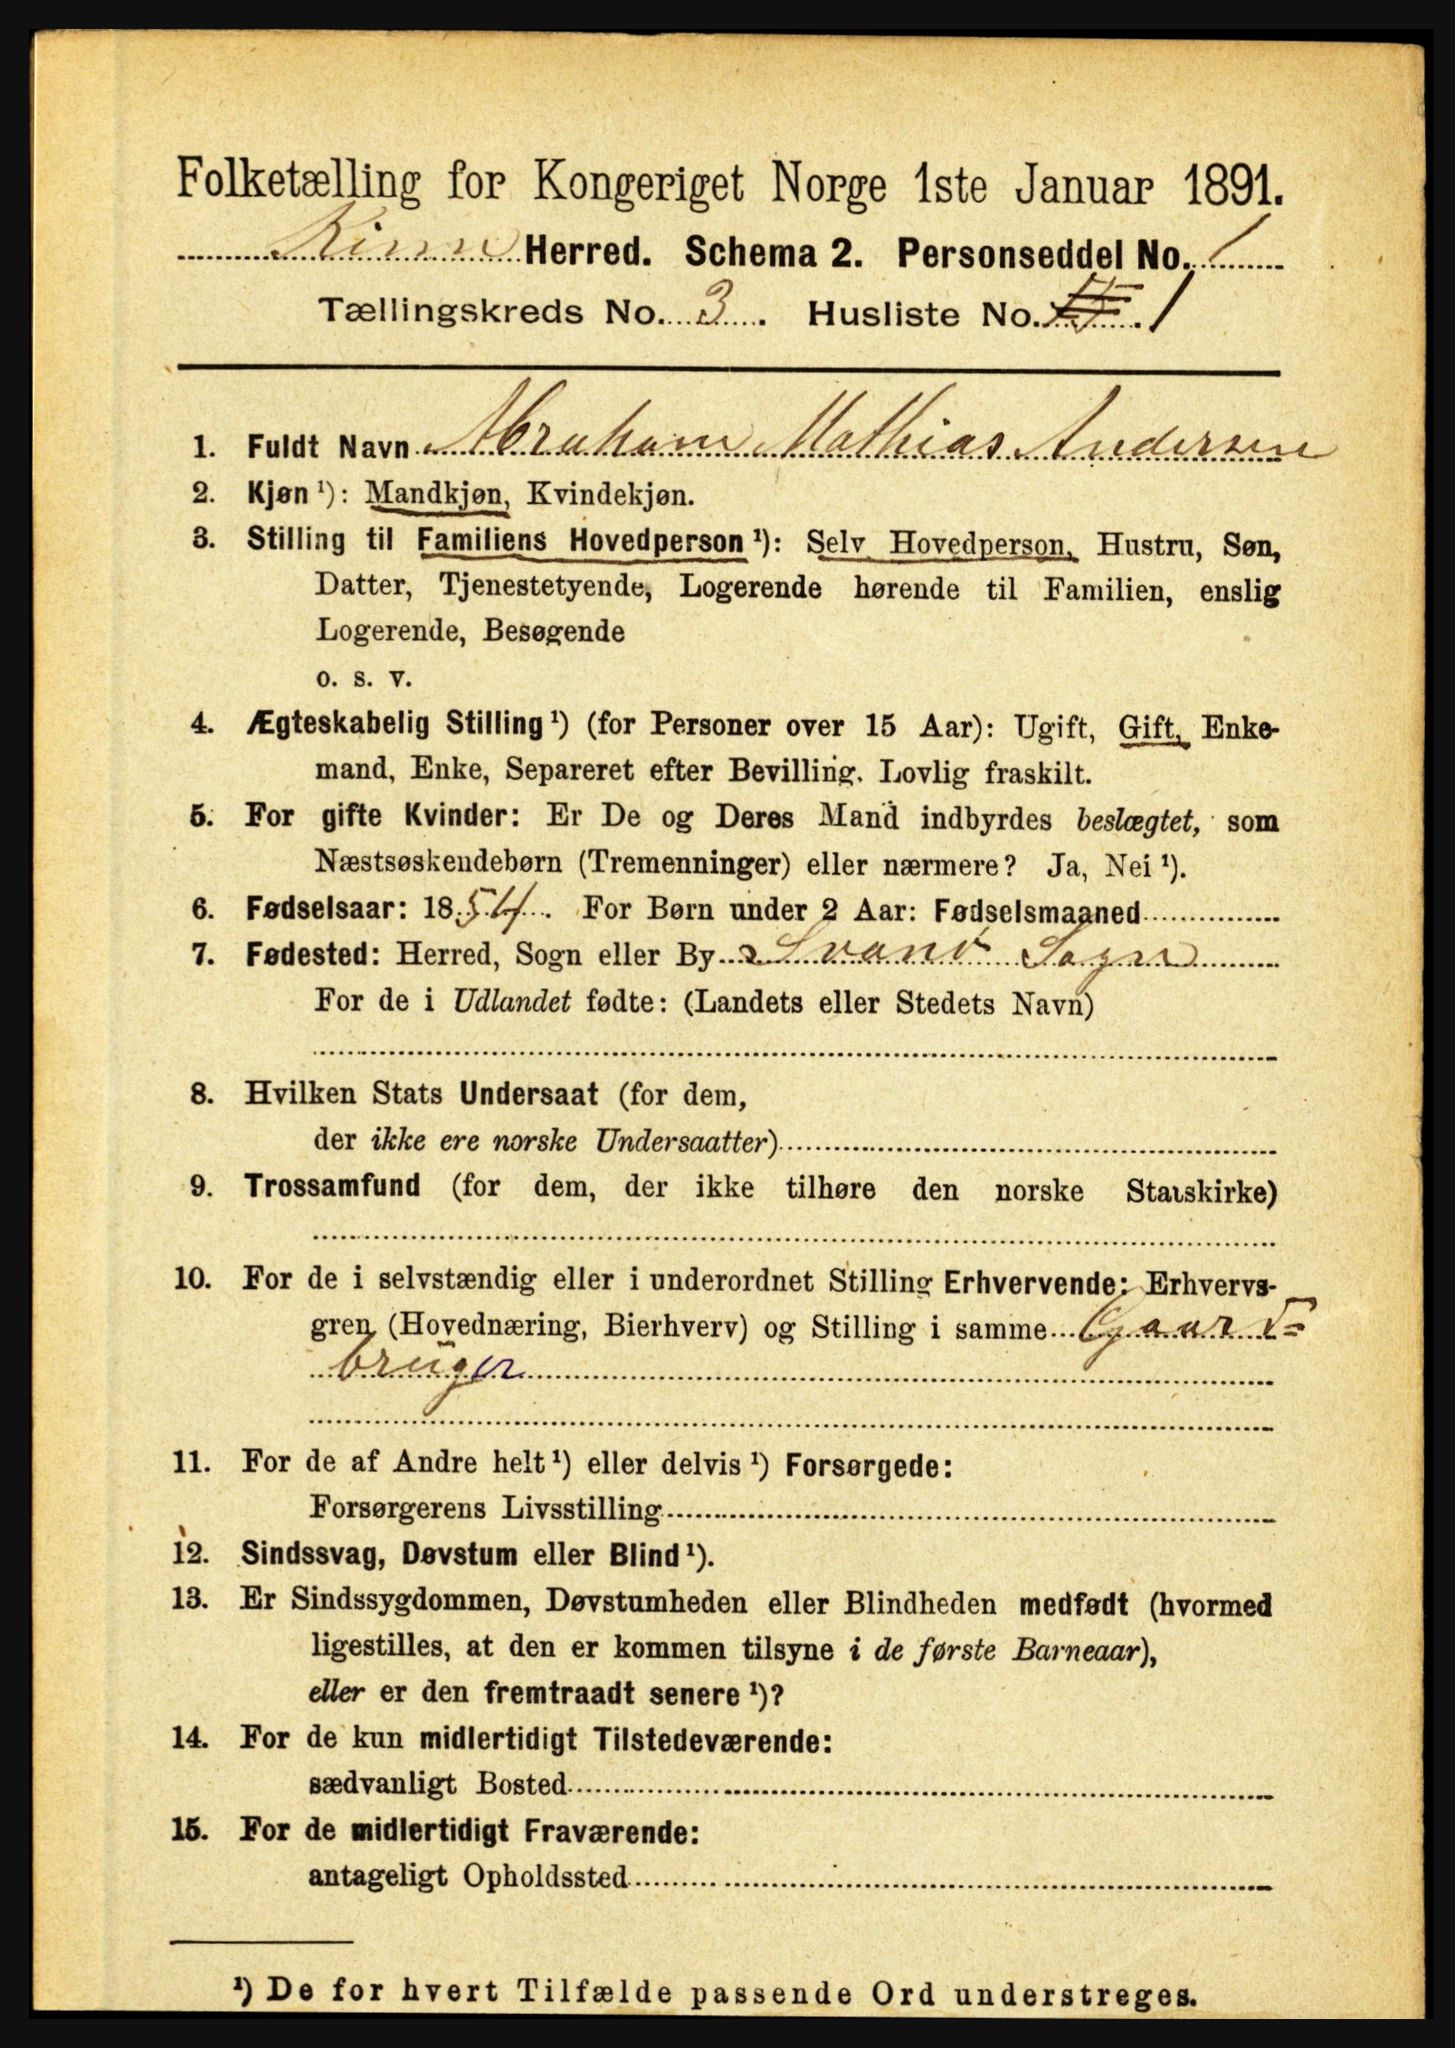 Folketælling for Kongeriget Norge 1ste Januar 1891.
Kinn Herred. Schema 2. Personseddel No. 1
Tællingskreds No. 3. Husliste No. 1
1. Fuldt Navn Abraham Mathias Andersen
2. Kjøn ¹): Mandkjøn, Kvindekjøn.
3. Stilling til Familiens Hovedperson ¹): Selv Hovedperson, Hustru, Søn,
Datter, Tjenestetyende, Logerende hørende til Familien, enslig
Logerende, Besøgende
o. s. v.
4. Ægteskabelig Stilling ¹) (for Personer over 15 Aar): Ugift, Gift, Enke-
mand, Enke, Separeret efter Bevilling. Lovlig fraskilt.
5. For gifte Kvinder: Er De og Deres Mand indbyrdes beslægtet, som
Næstsøskendebørn (Tremenninger) eller nærmere? Ja, Nei ¹).
6. Fødselsaar: 1854. For Børn under 2 Aar: Fødselsmaaned
7. Fødested: Herred, Sogn eller By Svanø Sogn
For de i Udlandet fødte: (Landets eller Stedets Navn)
8. Hvilken Stats Undersaat (for dem,
der ikke ere norske Undersaatter)
9. Trossamfund (for dem, der ikke tilhøre den norske Statskirke)
10. For de i selvstændig eller i underordnet Stilling Erhvervende: Erhvervs-
gren (Hovednæring, Bierhverv) og Stilling i samme Gaard=
bruger
11. For de af Andre helt ¹) eller delvis ¹) Forsørgede:
Forsørgerens Livsstilling
12. Sindssvag, Døvstum eller Blind ¹).
13. Er Sindssygdommen, Døvstumheden eller Blindheden medfødt (hvormed
ligestilles, at den er kommen tilsyne i de første Barneaar),
eller er den fremtraadt senere ¹)?
14. For de kun midlertidigt Tilstedeværende:
sædvanligt Bosted
15. For de midlertidigt Fraværende:
antageligt Opholdssted
¹) De for hvert Tilfælde passende Ord understreges.